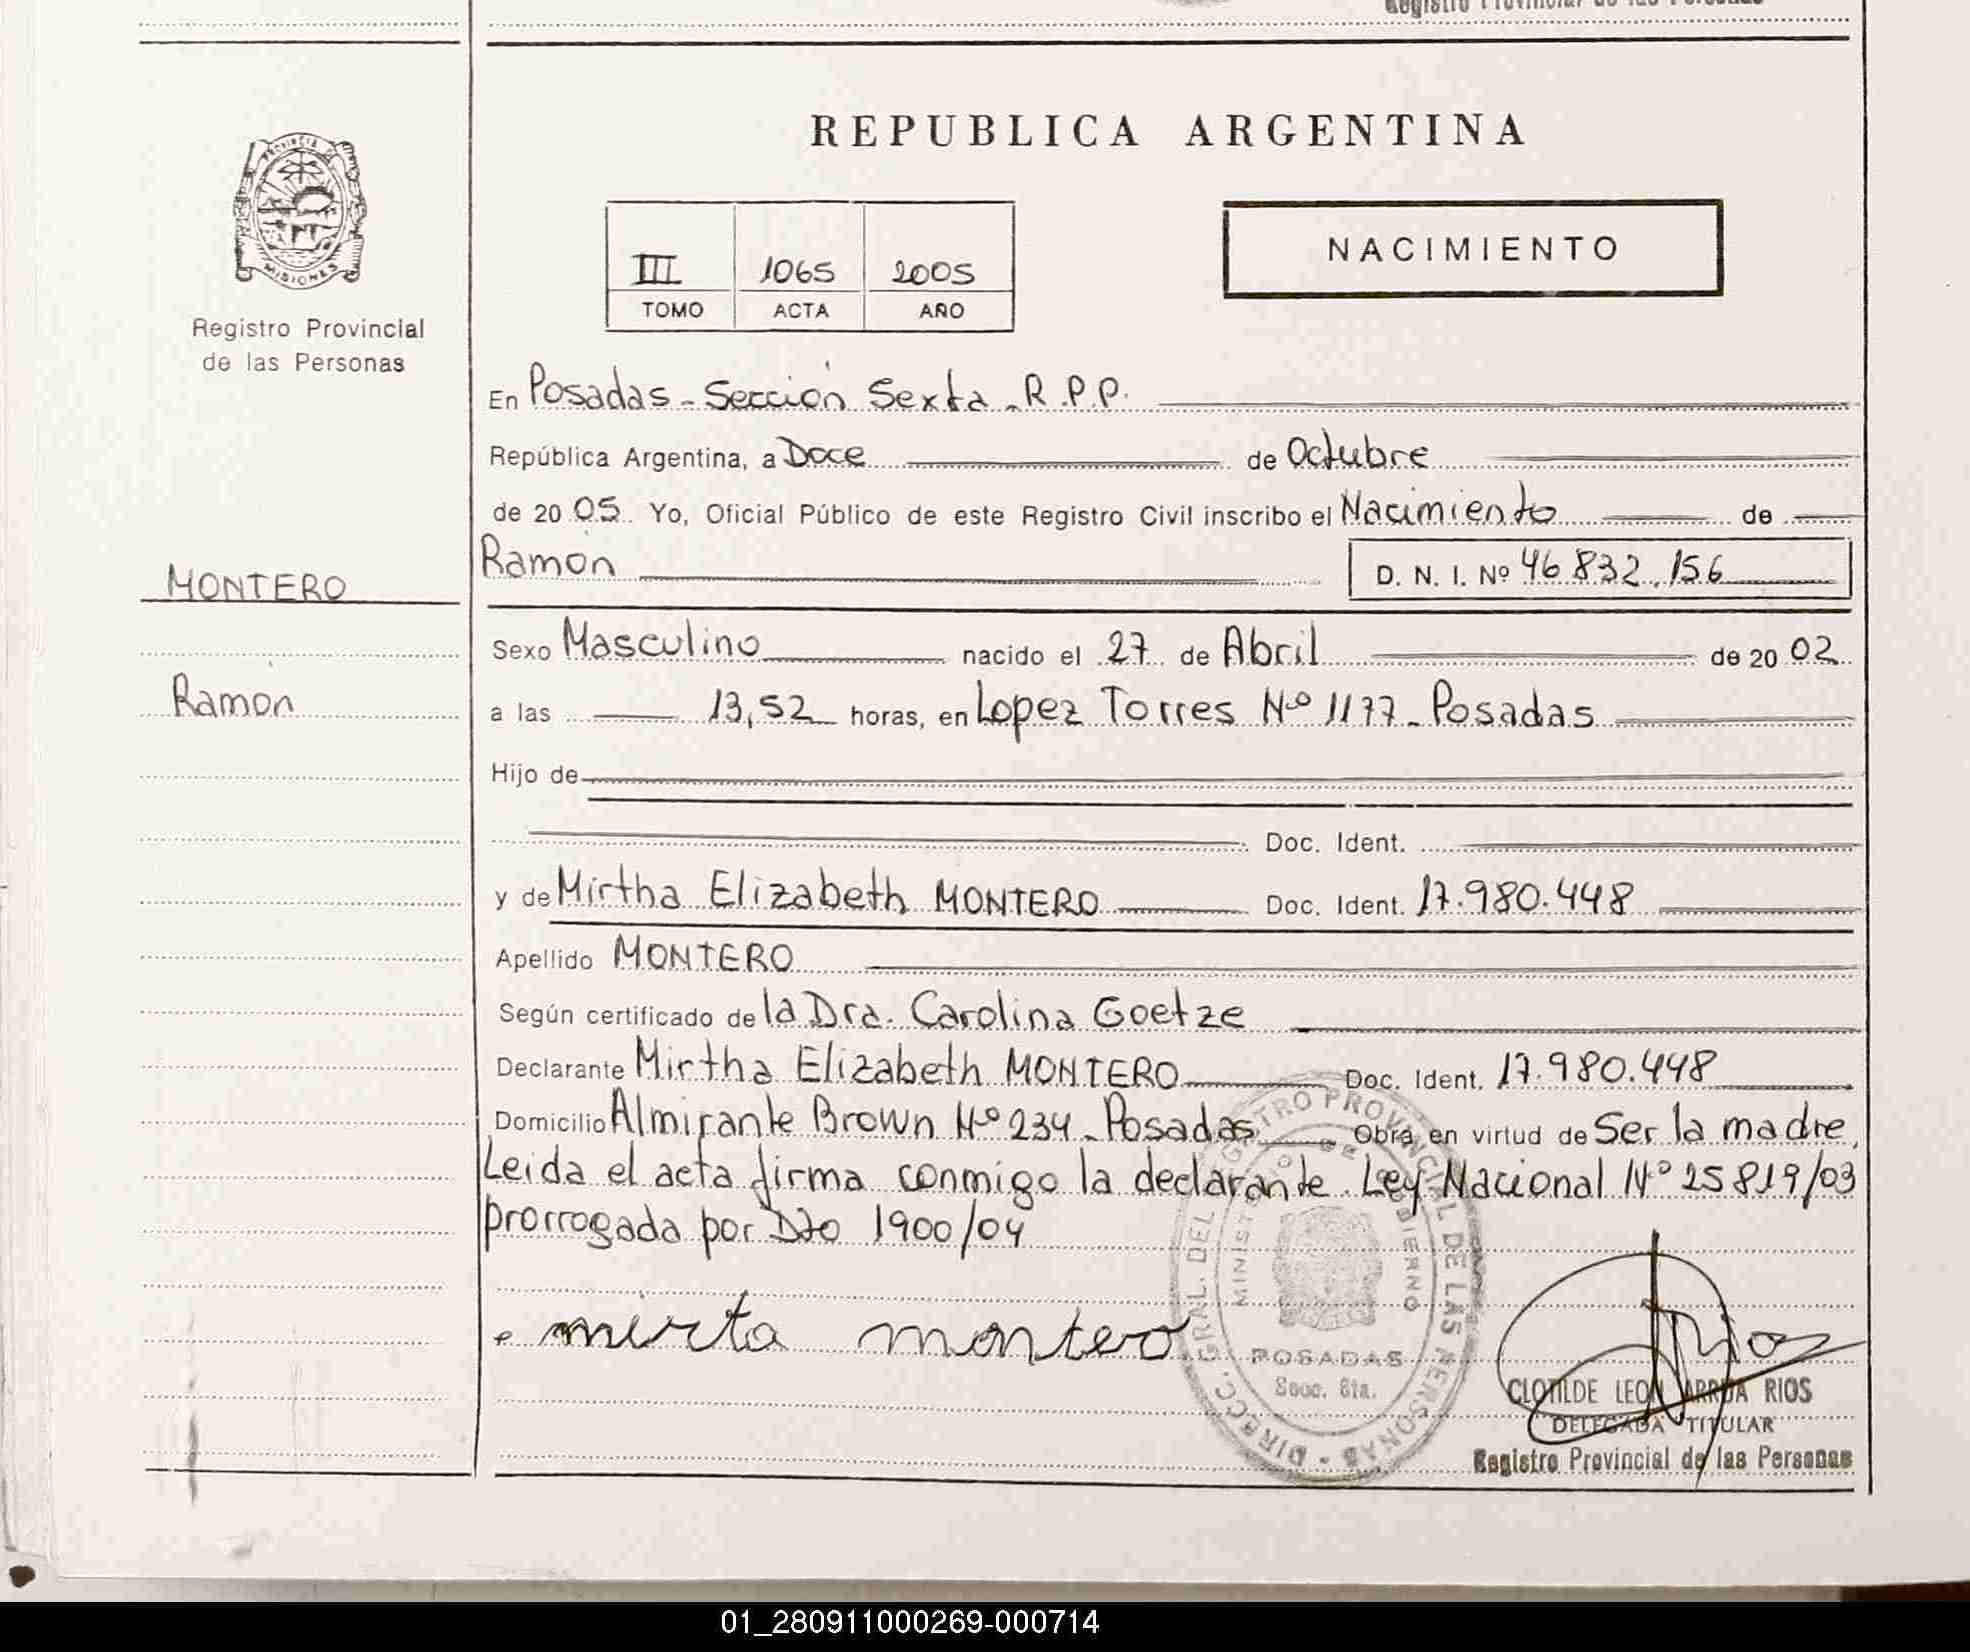 Registro Provincial de las Personas
PROVINCIA DE
MISIONES
Registro Provincial
de las Personas
MONTERO
Ramón
REPUBLICA ARGENTINA
III 1065 2005
TOMO ACTA AÑO
NACIMIENTO
En Posadas - Sección Sexta - R.P.P.
República Argentina, a Doce de Octubre
de 20 05. Yo, Oficial Público de este Registro Civil inscribo el Nacimiento de
Ramón D. N. I. Nº 46.832.156
Sexo Masculino nacido el 27 de Abril de 20 02
a las 13,52 horas, en Lopez Torres Nº 1177 - Posadas
Hijo de
Doc. Ident.
y de Mirtha Elizabeth MONTERO Doc. Ident. 17.980.448
Apellido MONTERO
Según certificado de la Dra. Carolina Goetze
Declarante Mirtha Elizabeth MONTERO Doc. Ident. 17.980.448
Domicilio Almirante Brown Nº 234 - Posadas Obra en virtud de Ser la madre,
Leida el acta firma conmigo la declarante. Ley Nacional Nº 25819/03
prorrogada por Dto 1900/04
mirta montero
DIRECC. GRAL. DEL REGISTRO PROVINCIAL DE LAS PERSONAS
MINISTERIO DE GOBIERNO
POSADAS
Secc. 6ta.
CLOTILDE LEON ARRUA RIOS
DELEGADA TITULAR
Registro Provincial de las Personas
01_280911000269-000714